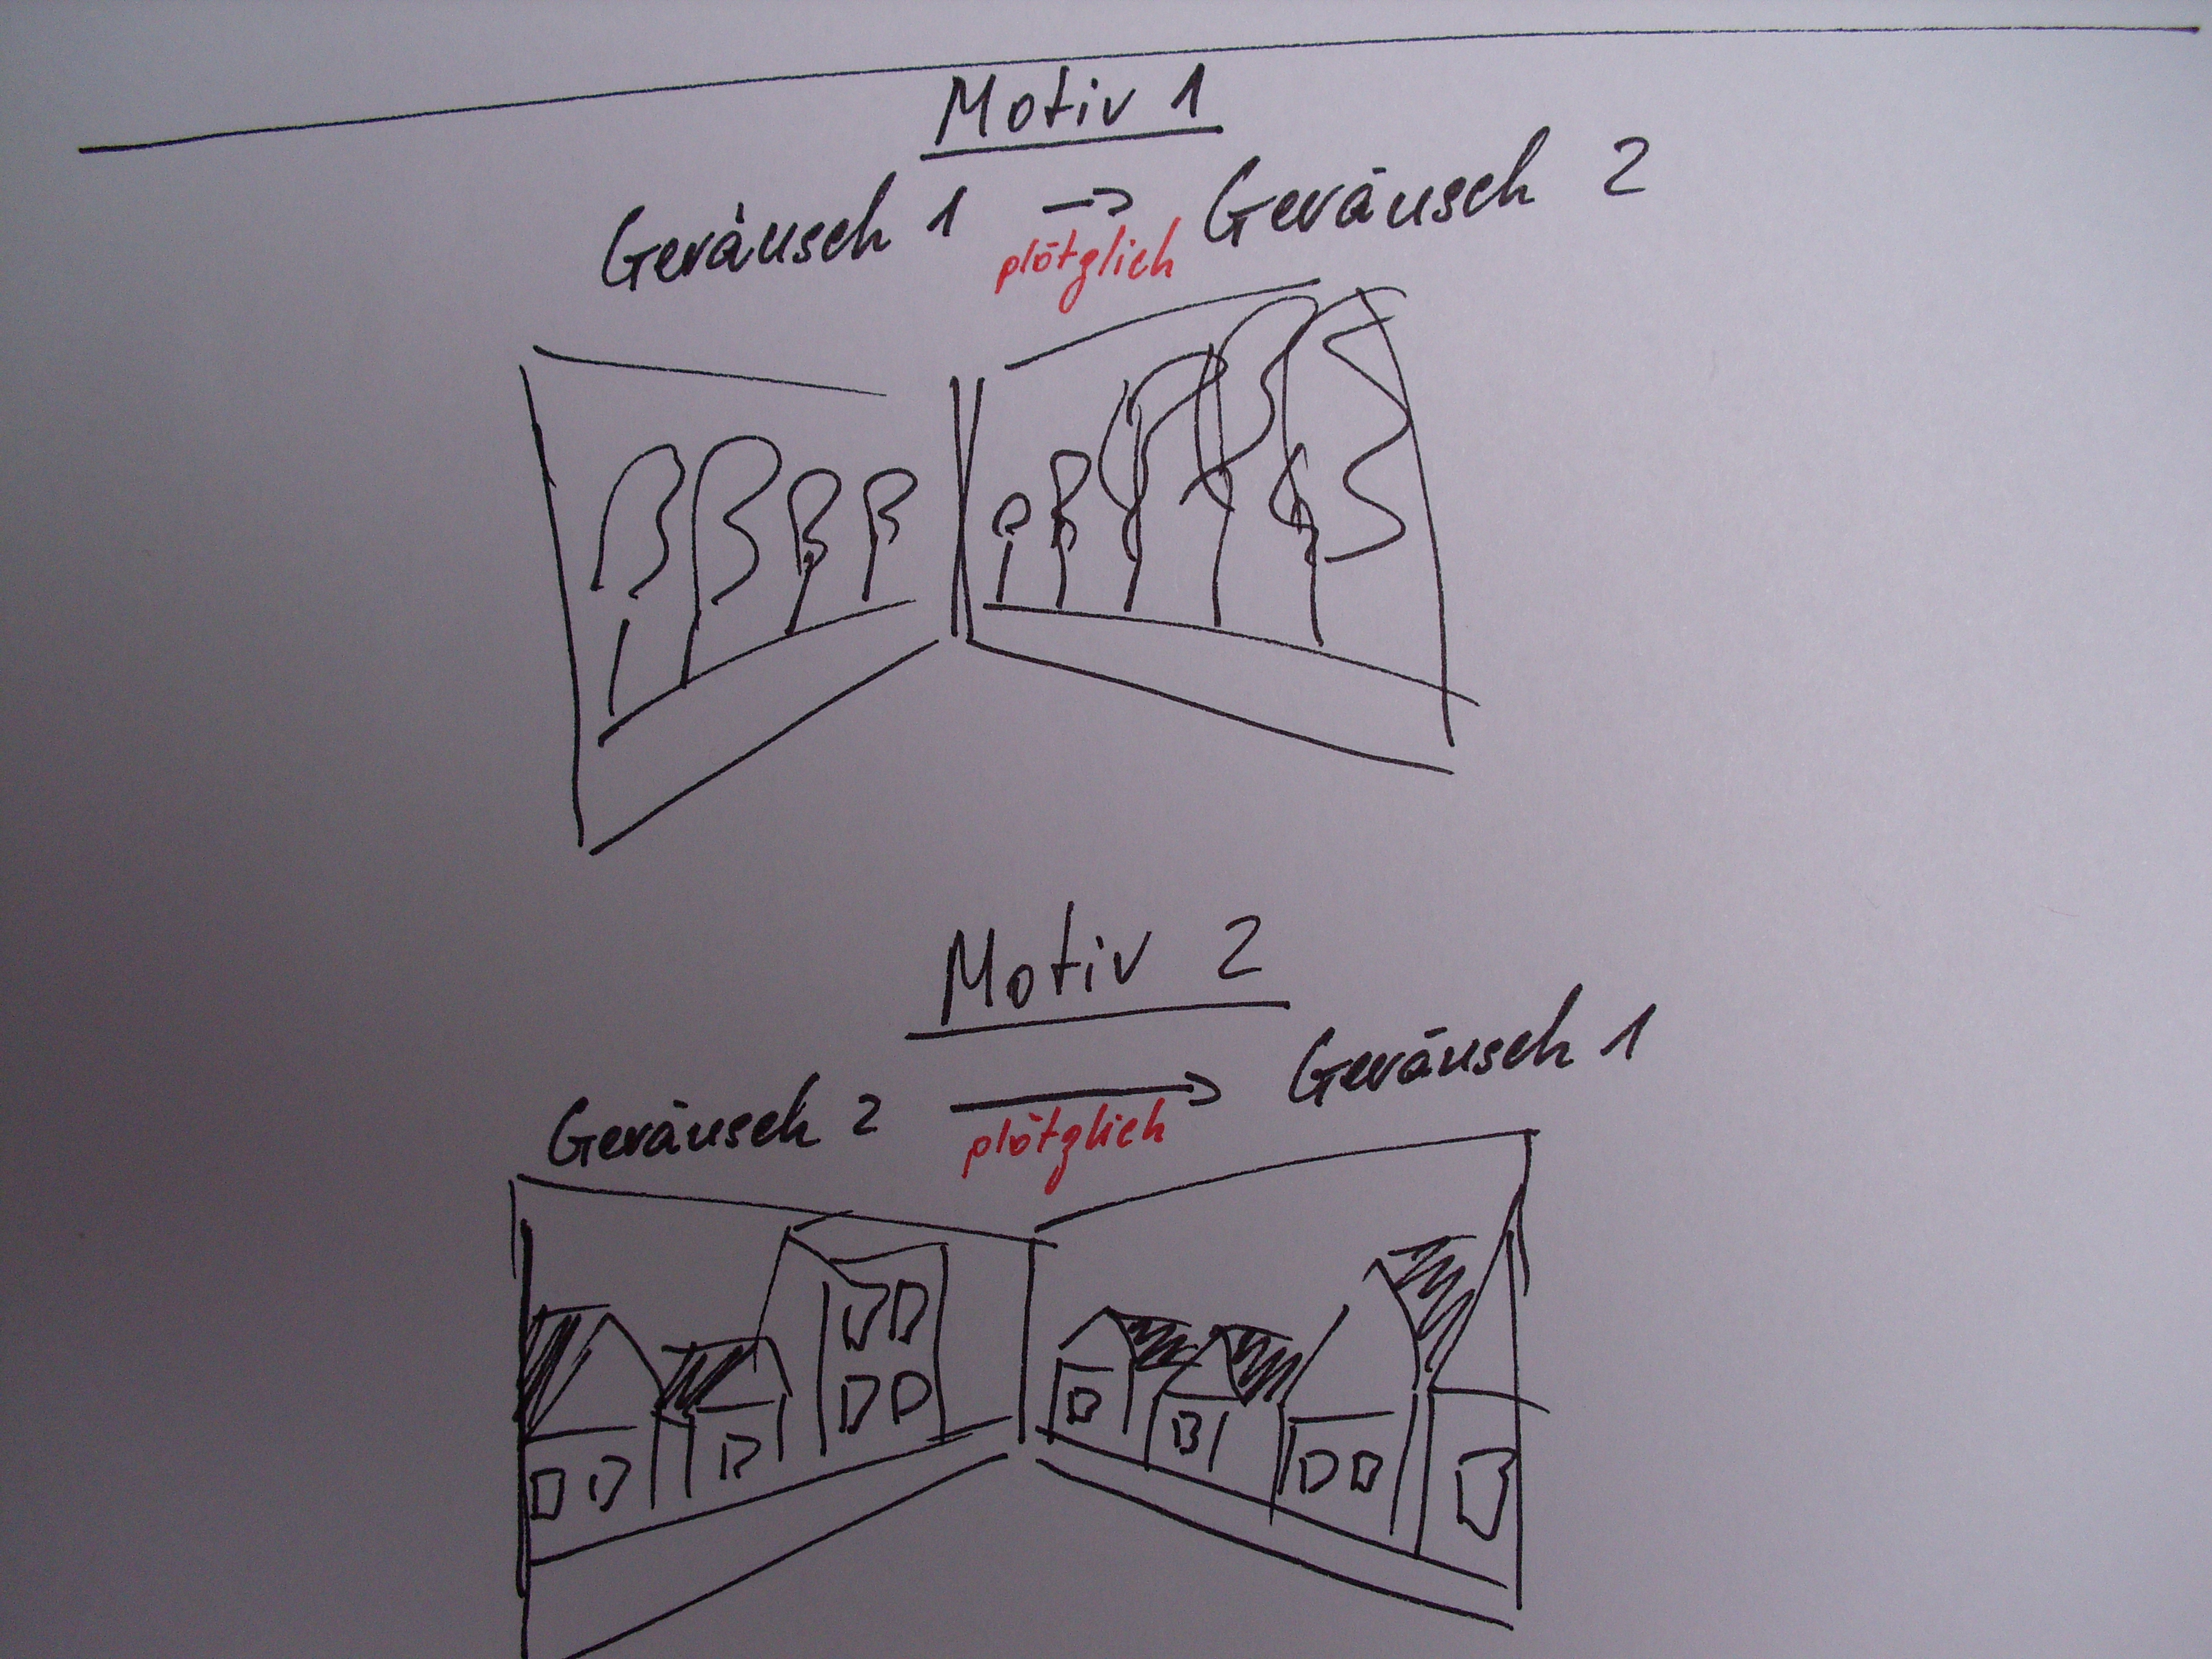 Motiv 1
Geräusch 1 → Geräusch 2
plötzlich
Motiv 2
Geräusch 2 → Geräusch 1
plötzlich